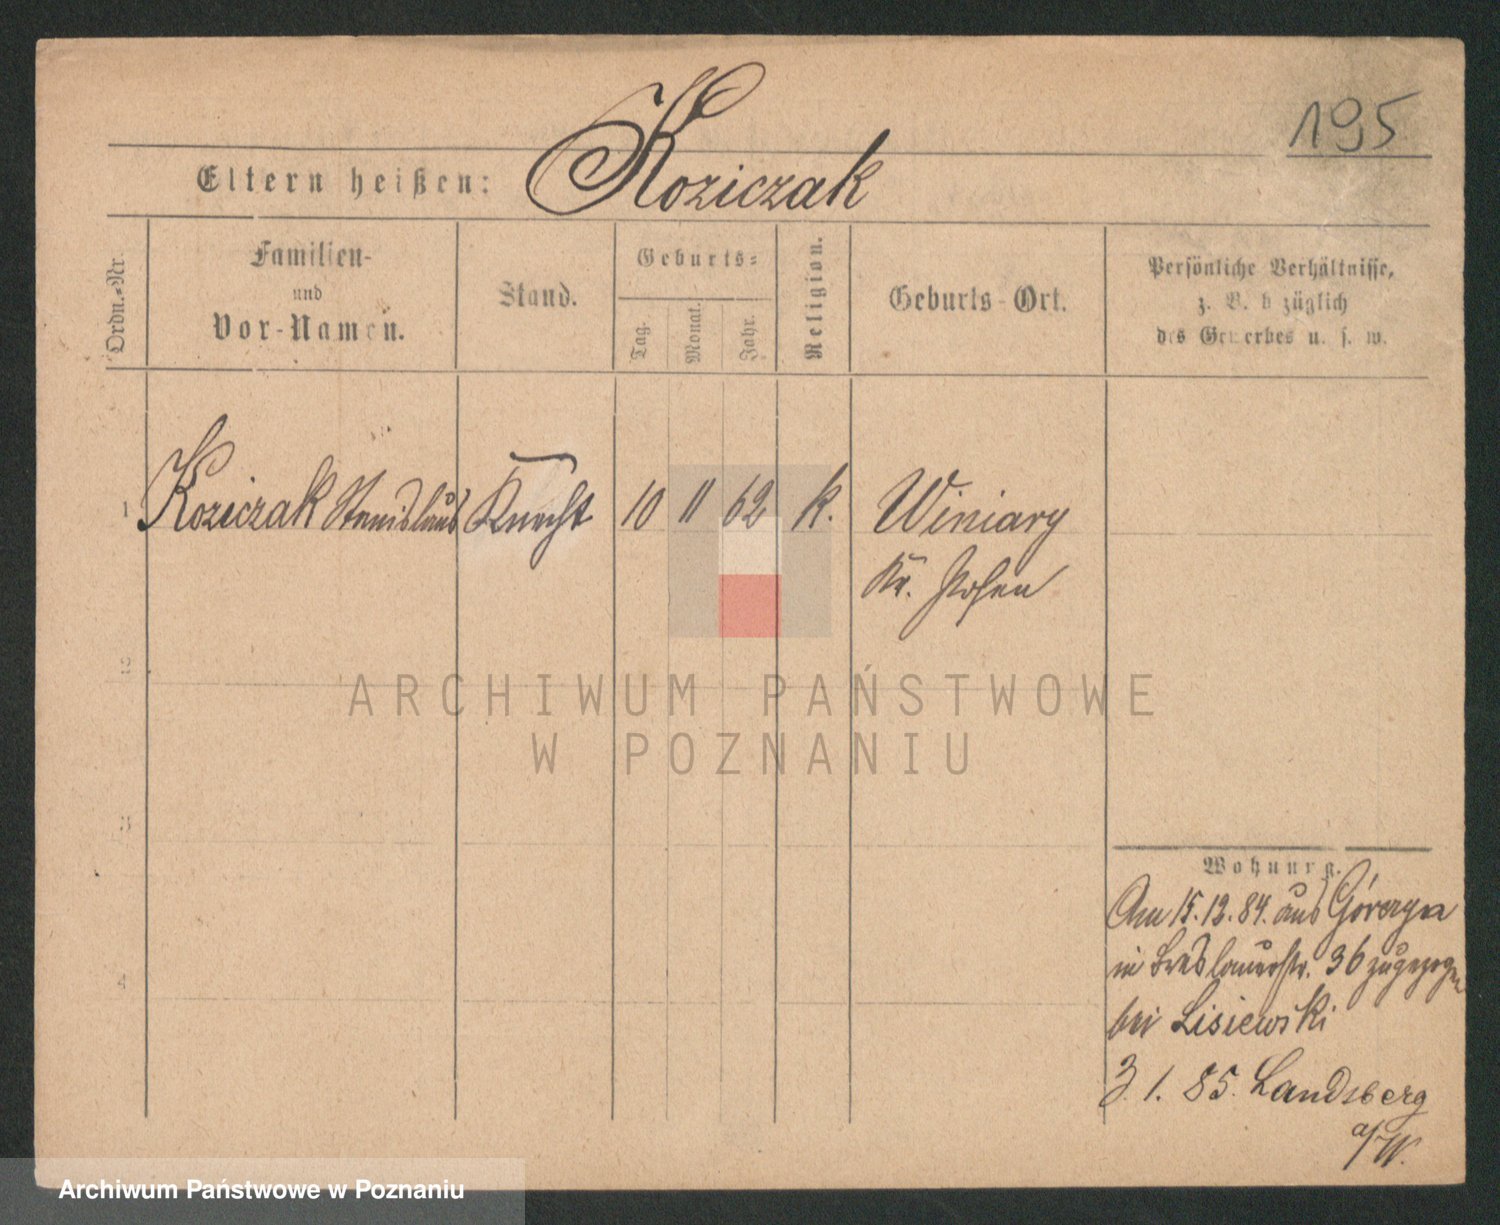 195
Eltern heißen: Koziczak
Ordn.-Nr.
Familien-
und
Vor-Namen.
Stand.
Geburts-
Tag.
Monat.
Jahr.
Religion.
Geburts-Ort.
Persönliche Verhältnisse,
z. B. bezüglich
des Gewerbes u. s. w.
1 Koziczak Stanislaus Knecht 10 11 62 k. Winiary
Kr. Posen
2
3
4
Wohnung.
Am 15.12.84. aus
in Breslauerstr. 36 zugezogen
bei Lisiewski
3.1.85. Landsberg
a/W.
ARCHIWUM PAŃSTWOWE
W POZNANIU
Archiwum Państwowe w Poznaniu